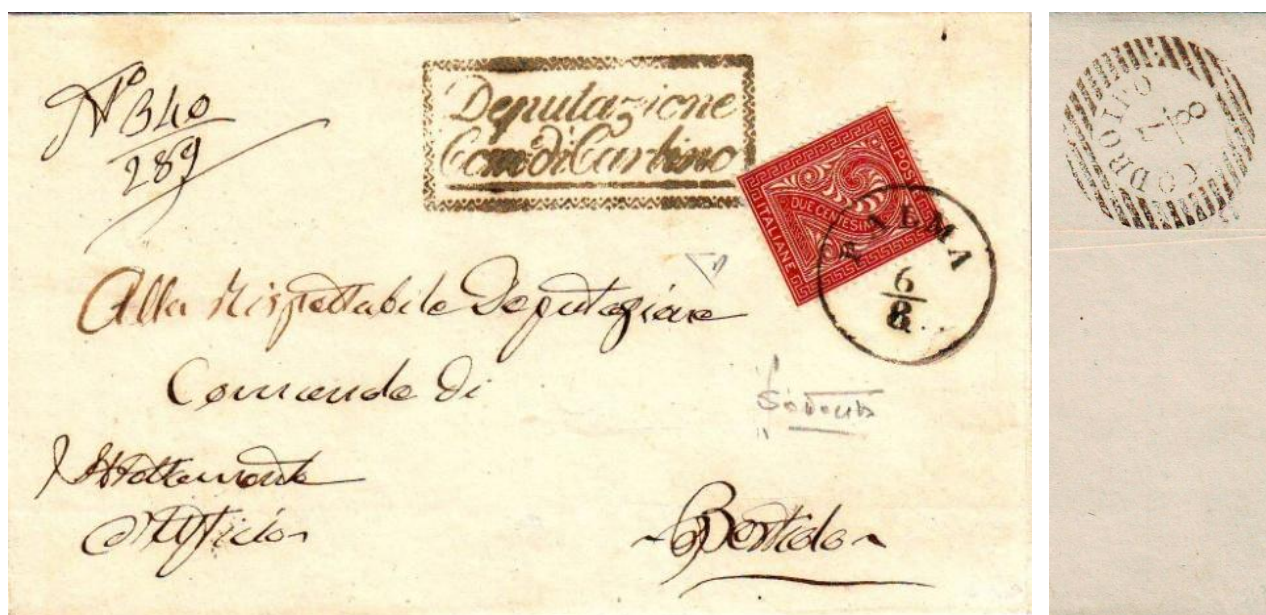 No 340
289
Deputazione
Com. di Carlino
POSTE
DUE CENTESIMI
ITALIANE
PALMA
6
8
Alla Rispettabile Deputazione
Comunale di
d'Ufficio
Bertiolo
CODROIPO
7
8